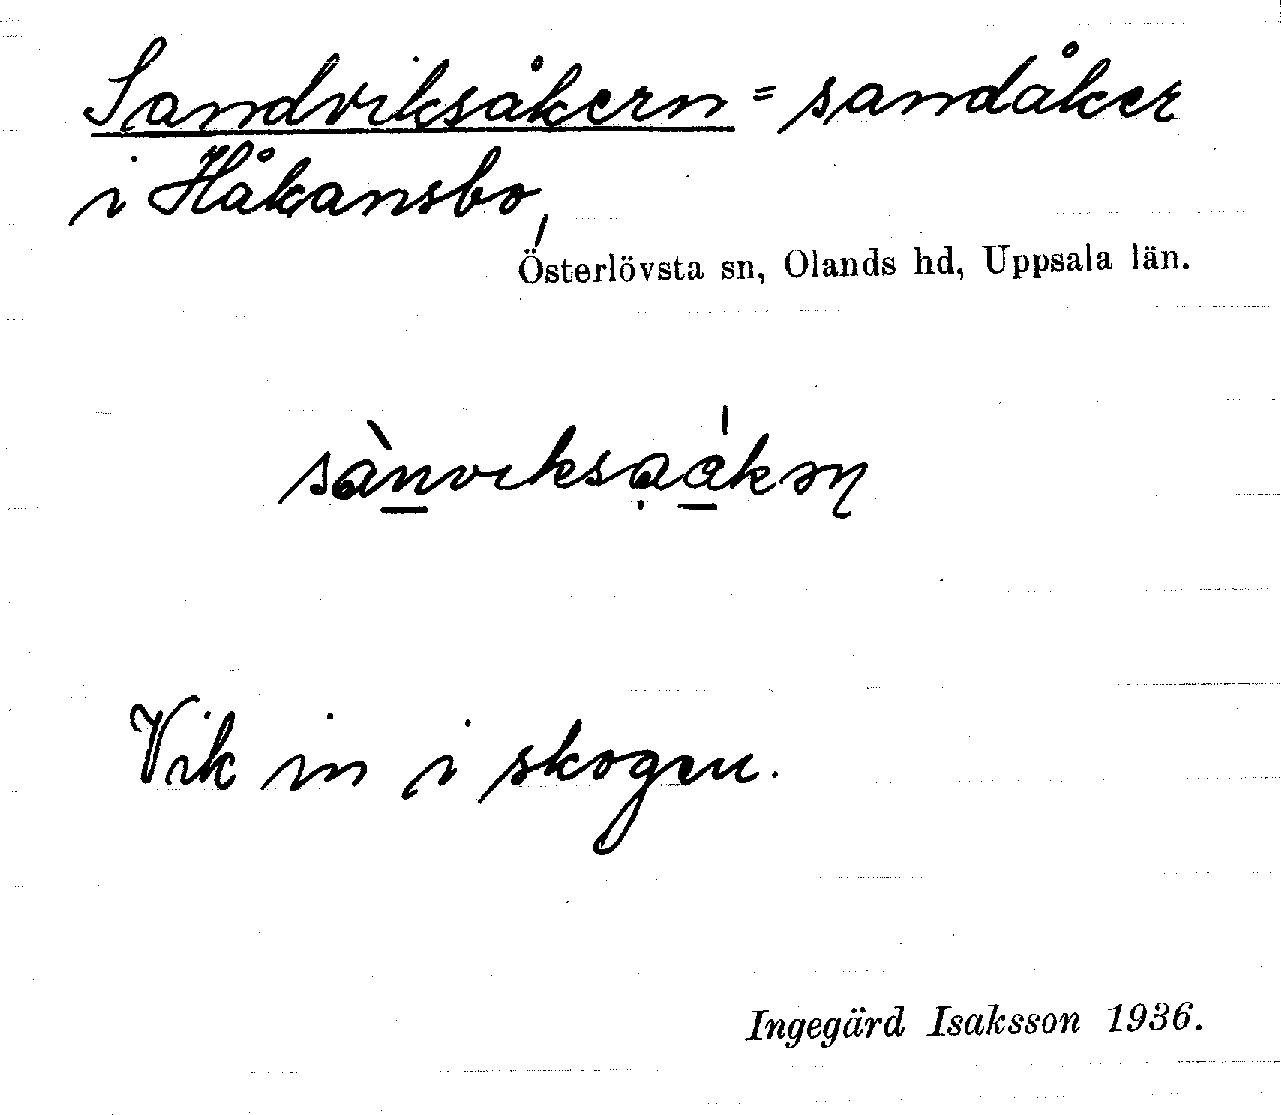 Sandviksåkern = sandåker
i Håkansbo,
Österlövsta sn, Olands hd, Uppsala län.
sànviksạákəɳ
Vik in i skogen.
Ingegärd Isaksson 1936.